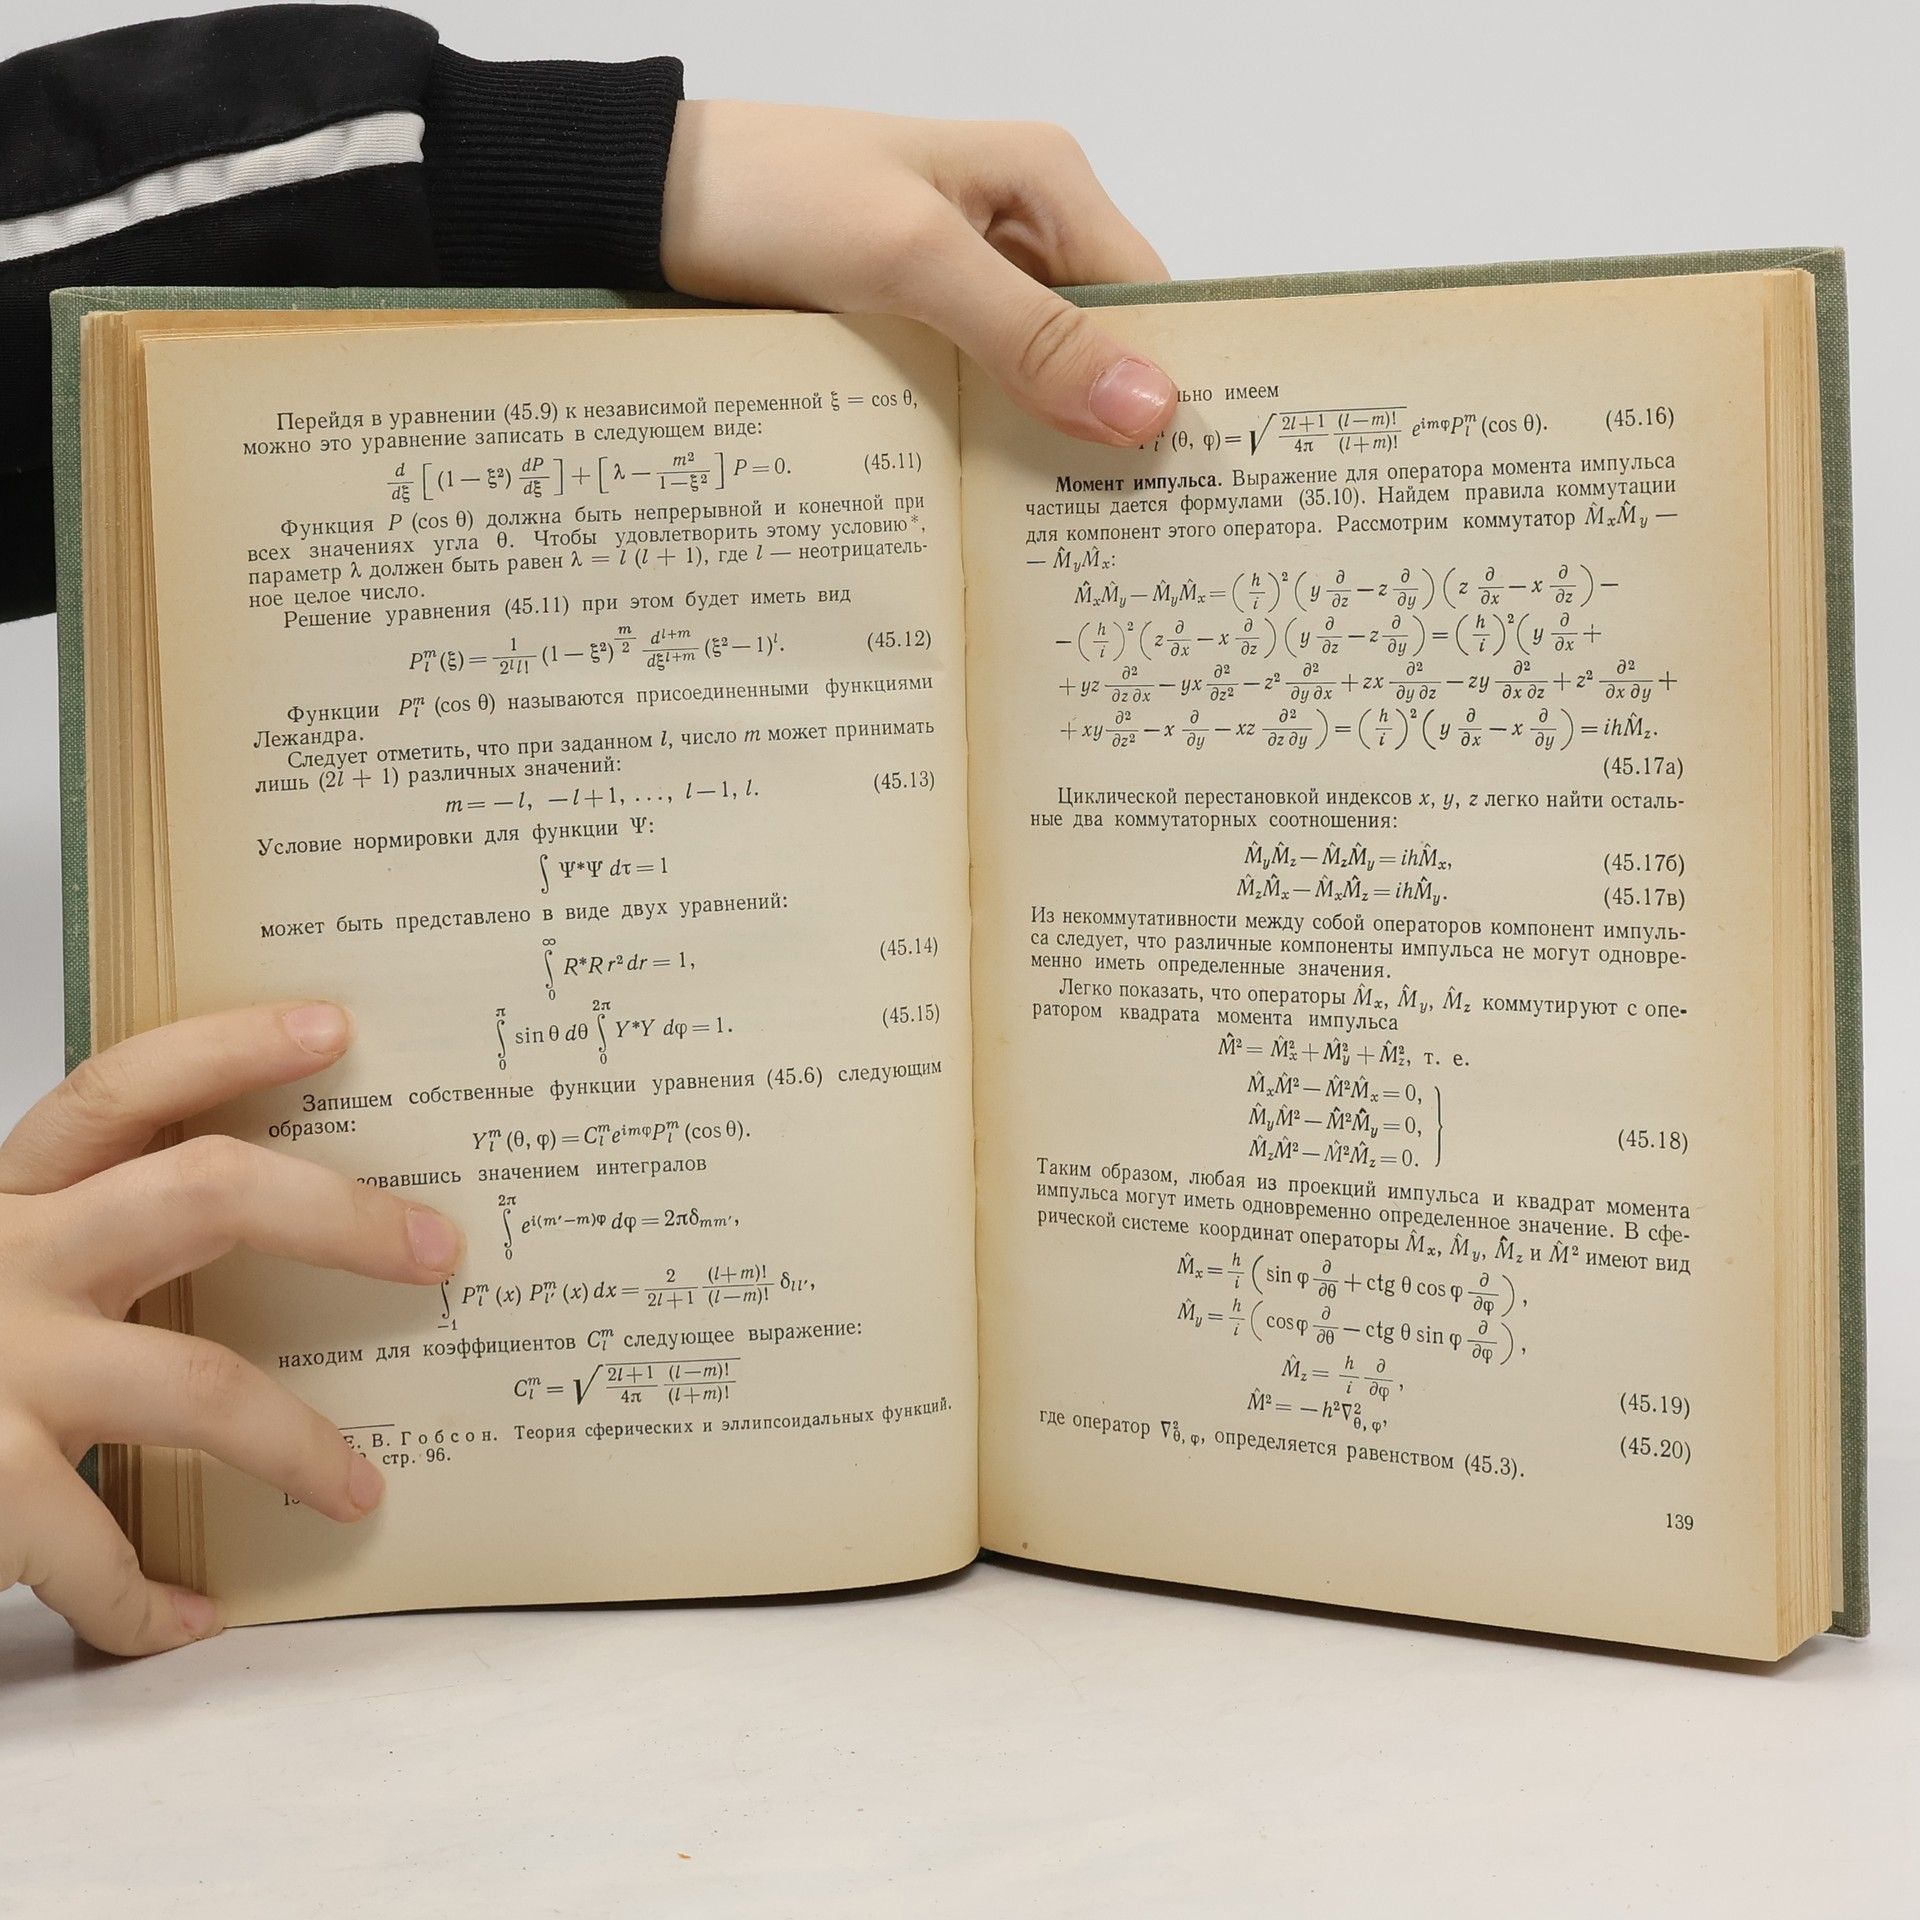 Перейдя в уравнении (45.9) к независимой переменной ξ = cos θ,
можно это уравнение записать в следующем виде:
d/dξ [(1 − ξ²) dP/dξ] + [λ − m²/(1−ξ²)] P = 0. (45.11)
Функция P (cos θ) должна быть непрерывной и конечной при
всех значениях угла θ. Чтобы удовлетворить этому условию*,
параметр λ должен быть равен λ = l (l + 1), где l — неотрицатель-
ное целое число.
Решение уравнения (45.11) при этом будет иметь вид
P_l^m (ξ) = 1/(2^l l!) (1 − ξ²)^(m/2) d^(l+m)/dξ^(l+m) (ξ² − 1)^l. (45.12)
Функции P_l^m (cos θ) называются присоединенными функциями
Лежандра.
Следует отметить, что при заданном l, число m может принимать
лишь (2l + 1) различных значений:
m = −l, −l+1, ..., l−1, l. (45.13)
Условие нормировки для функции Ψ:
∫ Ψ*Ψ dτ = 1
может быть представлено в виде двух уравнений:
∫_0^∞ R*R r² dr = 1, (45.14)
∫_0^π sin θ dθ ∫_0^2π Y*Y dφ = 1. (45.15)
Запишем собственные функции уравнения (45.6) следующим
образом:
Y_l^m (θ, φ) = C_l^m e^(imφ) P_l^m (cos θ).
зовавшись значением интегралов
∫_0^2π e^(i(m′−m)φ) dφ = 2πδ_mm′,
∫_−1 P_l^m (x) P_l′^m (x) dx = 2/(2l+1) (l+m)!/(l−m)! δ_ll′,
находим для коэффициентов C_l^m следующее выражение:
C_l^m = √((2l+1)/4π (l−m)!/(l+m)!)
Е. В. Гобсон. Теория сферических и эллипсоидальных функций.
стр. 96.
льно имеем
(θ, φ) = √((2l+1)/4π (l−m)!/(l+m)!) e^(imφ) P_l^m (cos θ). (45.16)
Момент импульса. Выражение для оператора момента импульса
частицы дается формулами (35.10). Найдем правила коммутации
для компонент этого оператора. Рассмотрим коммутатор M̂_xM̂_y —
— M̂_yM̂_x:
M̂_xM̂_y − M̂_yM̂_x = (h/i)² (y ∂/∂z − z ∂/∂y) (z ∂/∂x − x ∂/∂z) −
− (h/i)² (z ∂/∂x − x ∂/∂z) (y ∂/∂z − z ∂/∂y) = (h/i)² (y ∂/∂x +
+ yz ∂²/∂z ∂x − yx ∂²/∂z² − z² ∂²/∂y ∂x + zx ∂²/∂y ∂z − zy ∂²/∂x ∂z + z² ∂²/∂x ∂y +
+ xy ∂²/∂z² − x ∂/∂y − xz ∂²/∂z ∂y) = (h/i)² (y ∂/∂x − x ∂/∂y) = ihM̂_z.
(45.17а)
Циклической перестановкой индексов x, y, z легко найти осталь-
ные два коммутаторных соотношения:
M̂_yM̂_z − M̂_zM̂_y = ihM̂_x, (45.17б)
M̂_zM̂_x − M̂_xM̂_z = ihM̂_y. (45.17в)
Из некоммутативности между собой операторов компонент импуль-
са следует, что различные компоненты импульса не могут одновре-
менно иметь определенные значения.
Легко показать, что операторы M̂_x, M̂_y, M̂_z коммутируют с опе-
ратором квадрата момента импульса
M̂² = M̂_x² + M̂_y² + M̂_z², т. е.
M̂_xM̂² − M̂²M̂_x = 0,
M̂_yM̂² − M̂²M̂_y = 0,
M̂_zM̂² − M̂²M̂_z = 0. } (45.18)
Таким образом, любая из проекций импульса и квадрат момента
импульса могут иметь одновременно определенное значение. В сфе-
рической системе координат операторы M̂_x, M̂_y, M̂_z и M̂² имеют вид
M̂_x = h/i (sin φ ∂/∂θ + ctg θ cos φ ∂/∂φ),
M̂_y = h/i (cos φ ∂/∂θ − ctg θ sin φ ∂/∂φ),
M̂_z = h/i ∂/∂φ, (45.19)
M̂² = −h²∇²_θ, φ, (45.20)
где оператор ∇²_θ, φ, определяется равенством (45.3).
139